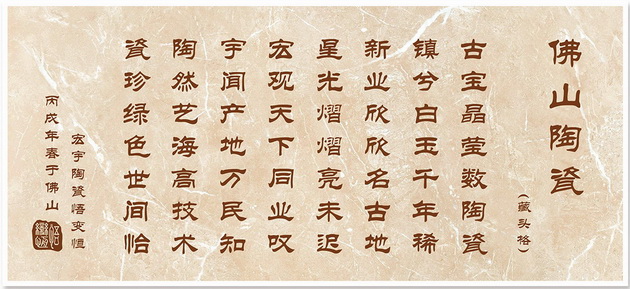 佛山陶瓷
(藏头格)
古宝晶莹数陶瓷
镇兮白玉千年稀
新业欣欣名古地
星光熠熠亮未迟
宏观天下同业叹
宇闻产地万民知
陶然艺海高技术
瓷珍绿色世间怡
宏宇陶瓷悟变恒
丙戌年春于佛山